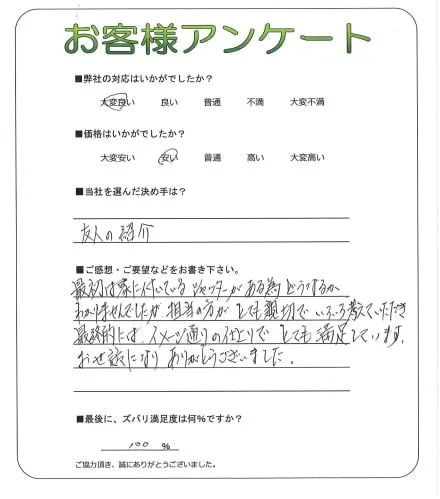 お客様アンケート
■弊社の対応はいかがでしたか？
大変良い 良い 普通 不満 大変不満
■価格はいかがでしたか？
大変安い 安い 普通 高い 大変高い
■当社を選んだ決め手は？
友人の紹介
■ご感想・ご要望などをお書き下さい。
最初は家に付いているシャッターがある為どうするか
わかりませんでしたが、担当の方がとても親切でいろいろ考えていただき
最終的には、イメージ通りの仕上りでとても満足しています。
お世話になりありがとうございました。
■最後に、ズバリ満足度は何%ですか？
100 %
ご協力頂き、誠にありがとうございました。